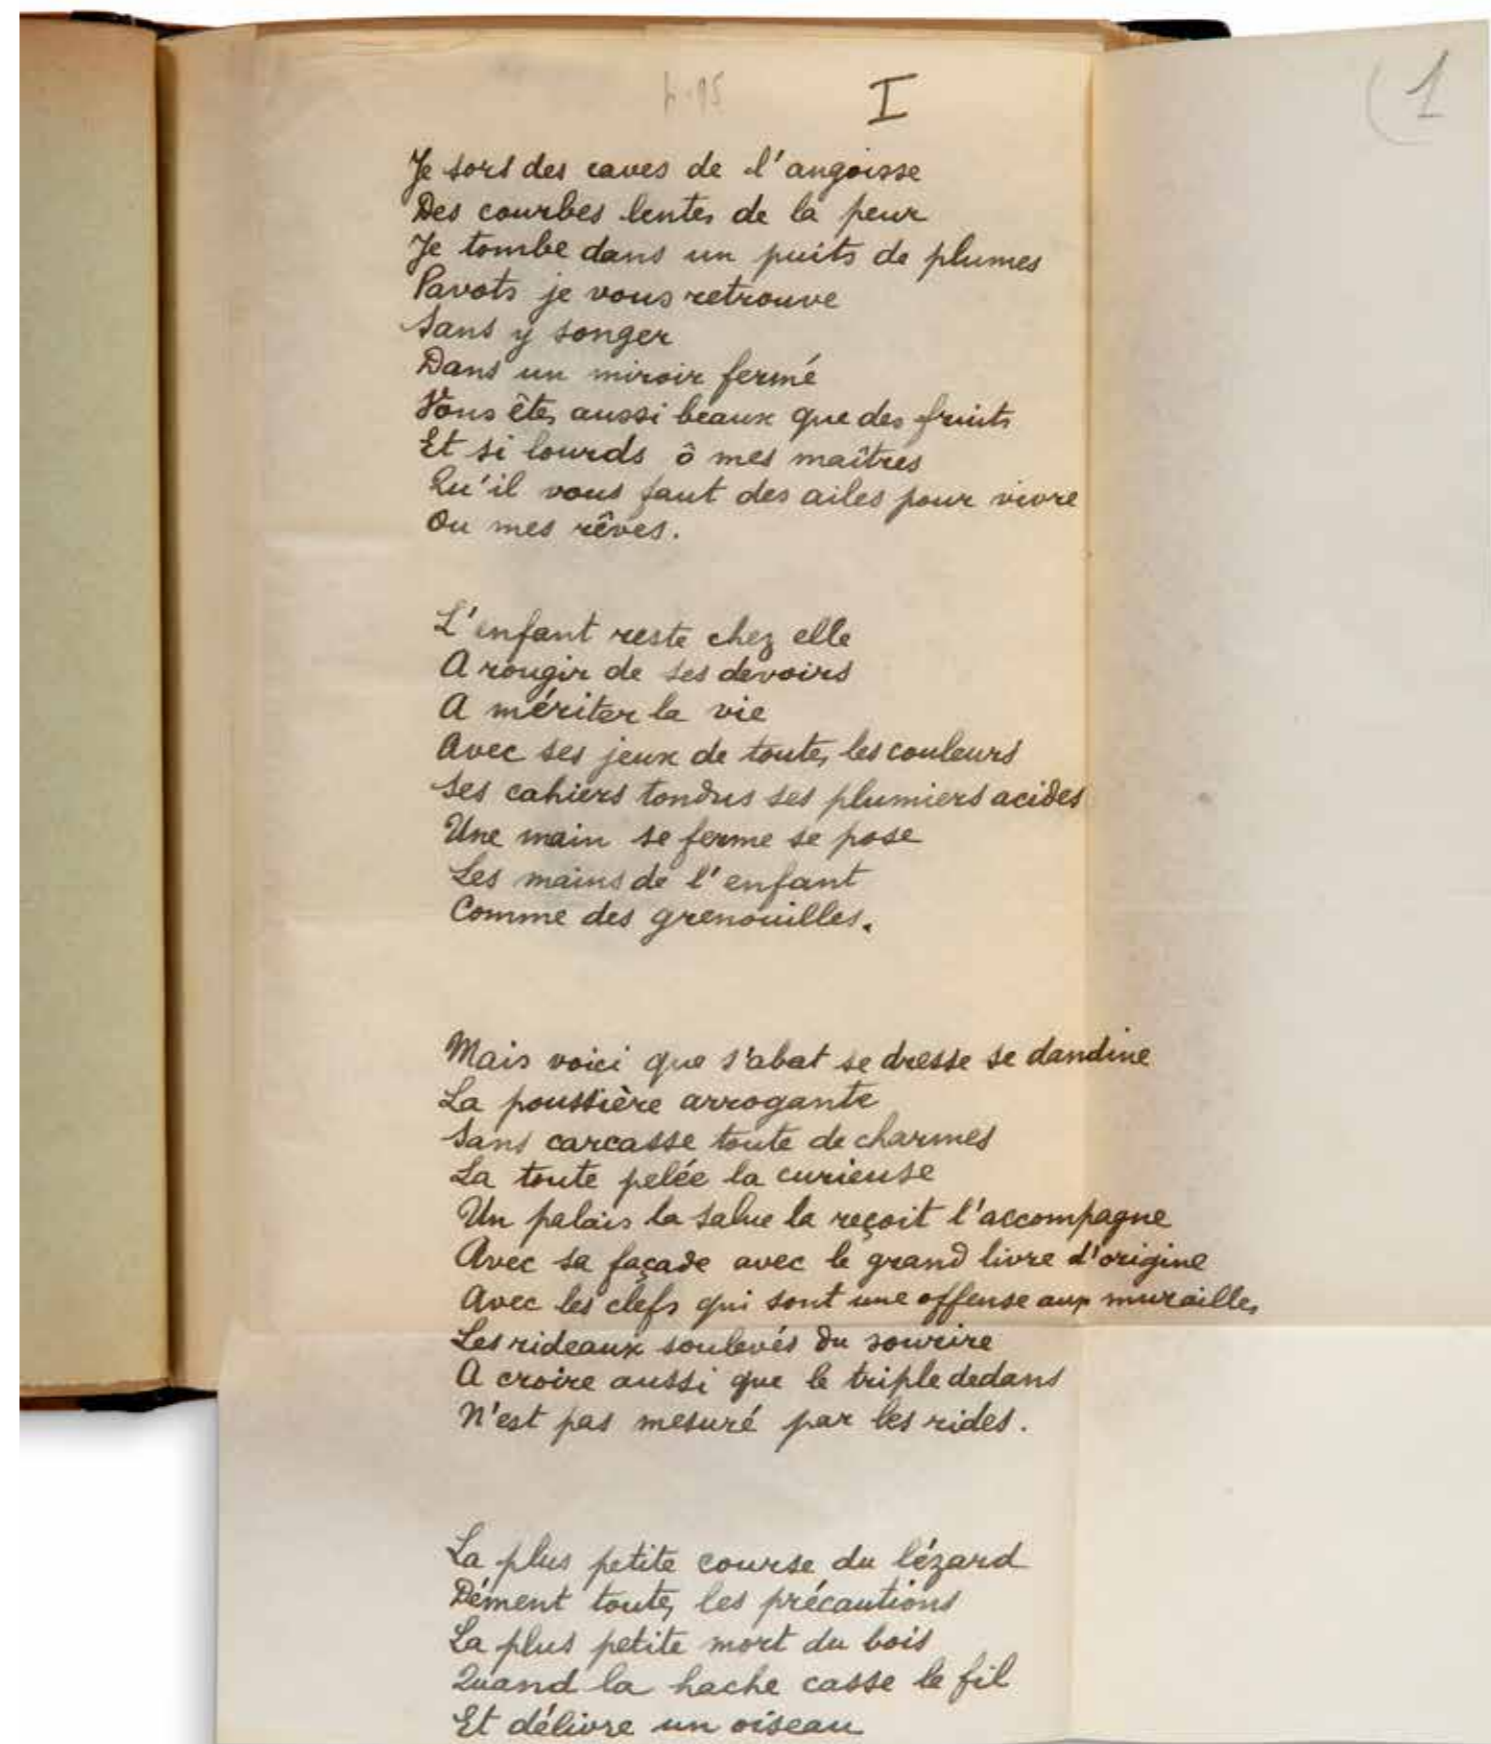 I
(1
Je sors des caves de l'angoisse
Des courbes lentes de la peur
Je tombe dans un puits de plumes
Pavots je vous retrouve
Sans y songer
Dans un miroir fermé
Vous êtes aussi beaux que des fruits
Et si lourds ô mes maîtres
Qu'il vous faut des ailes pour vivre
Ou mes rêves.
L'enfant reste chez elle
A rougir de ses devoirs
A mériter la vie
Avec ses jeux de toutes les couleurs
Ses cahiers tondus ses plumiers acides
Une main se ferme se pose
Les mains de l'enfant
Comme des grenouilles.
Mais voici que s'abat se dresse se dandine
La poussière arrogante
Sans carcasse toute de charmes
La toute pelée la curieuse
Un palais la salue la reçoit l'accompagne
Avec sa façade avec le grand livre d'origine
Avec les clefs qui sont une offense aux murailles
Les rideaux soulevés du sourire
A croire aussi que le triple dedans
N'est pas mesuré par les rides.
La plus petite course du lézard
Dément toutes les précautions
La plus petite mort du bois
Quand la hache casse le fil
Et délivre un oiseau